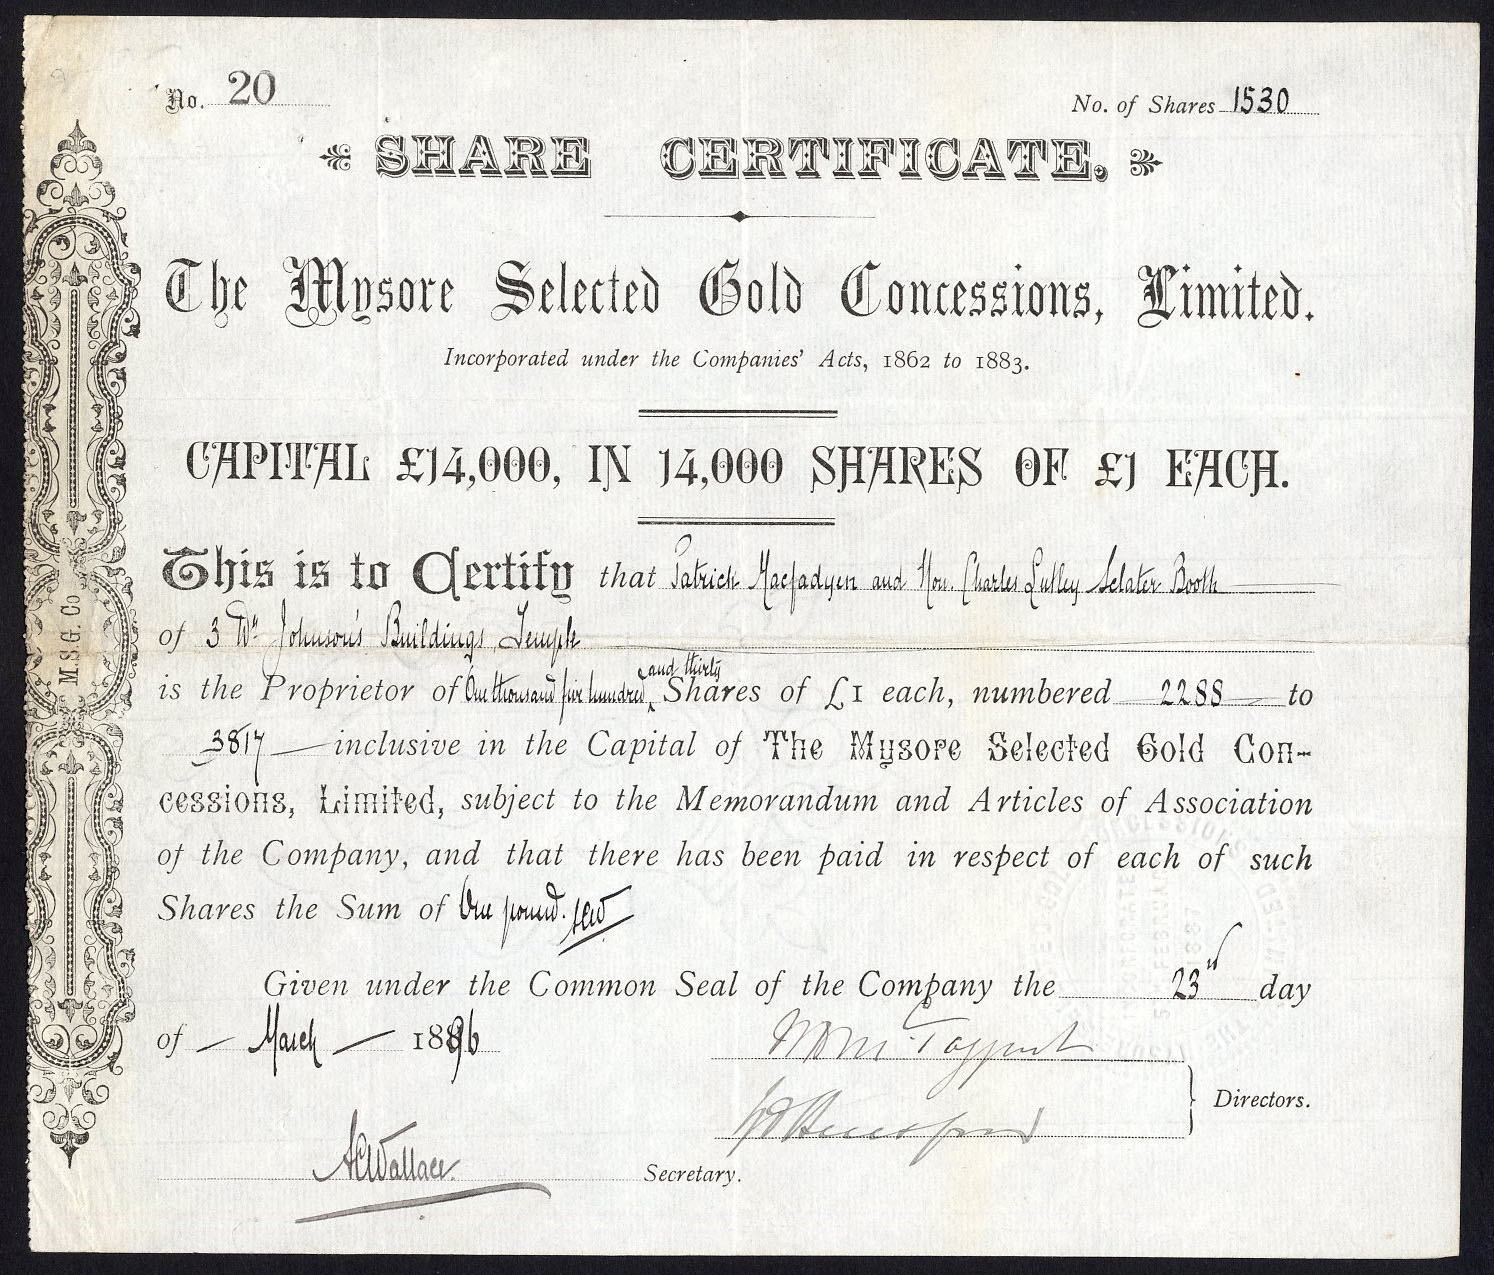 No. 20
No. of Shares 1530
SHARE CERTIFICATE.
The Mysore Selected Gold Concessions, Limited.
Incorporated under the Companies' Acts, 1862 to 1883.
CAPITAL £14,000, IN 14,000 SHARES OF £1 EACH.
This is to Certify that Patrick Macfadyen and Hon. Charles Lutley Sclater Booth
of 3 Dr. Johnson's Buildings, Temple
and thirty
is the Proprietor of One thousand five hundred Shares of £1 each, numbered 2288 to
3817 inclusive in the Capital of The Mysore Selected Gold Con-
cessions, Limited, subject to the Memorandum and Articles of Association
of the Company, and that there has been paid in respect of each of such
Shares the Sum of One pound. ACW
Given under the Common Seal of the Company the 23rd day
of March 1896
Directors.
ACWallace.
Secretary.
M.S.G. Co